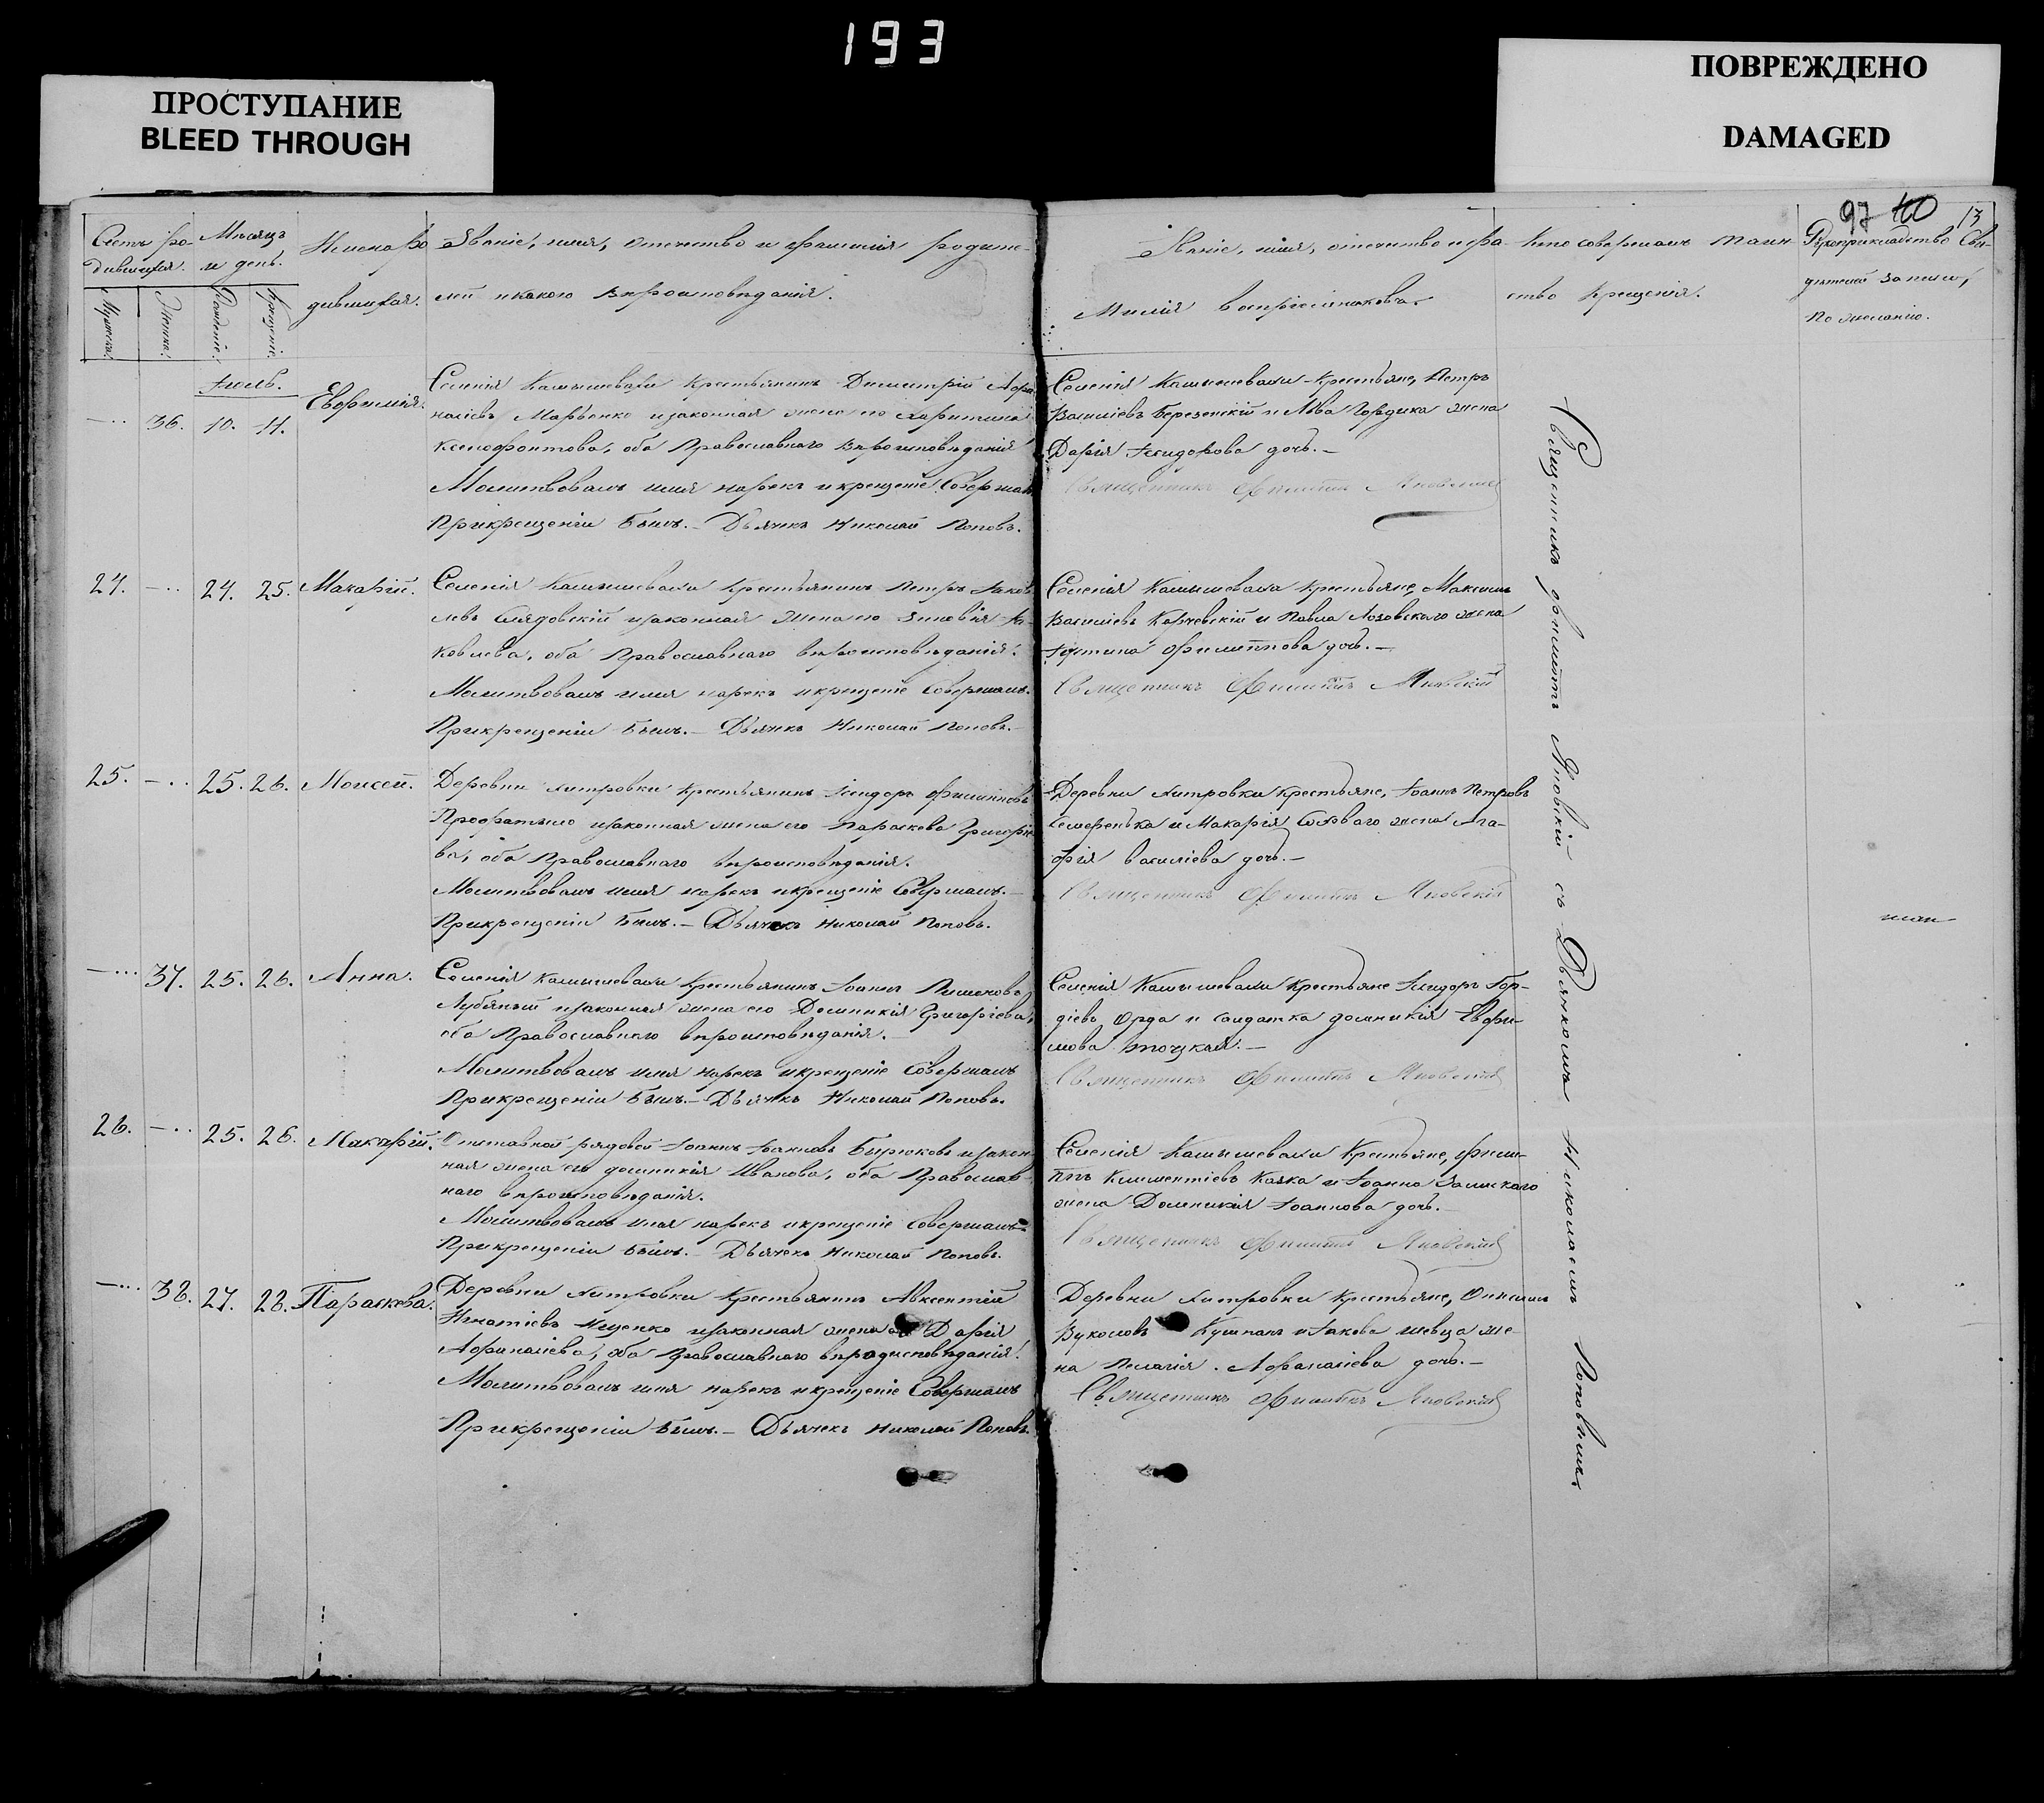 193
ПРОСТУПАНИЕ
BLEED THROUGH
ПОВРЕЖДЕНО
DAMAGED
97 40 13
Счетъ ро-
дившихся.
Мѣсяцъ
и день.
Имена ро
дившихся.
Званіе, имя, отечество и фамилія родите-
лей и какого вѣроисповѣданія.
Мужеска.
Женска.
Рожденіе.
Крещеніе.
Званіе, имя, отечество и фа-
милія воспріемниковъ.
Кто совершалъ таин-
ство крещенія.
Рукоприкладство Сви-
дѣтелей записи,
по желанію.
Іюль.
36. 10. 11.
Евфимія.
Селенія Камышевахи Крестьянинъ Димитрій Афа
насіевъ Марченко и законная жена его Харитина
Ксенофонтова, оба Православнаго вѣроисповѣданія
Молитвовалъ имя нарекъ и крещеніе Совершалъ
При крещеніи былъ. – Дьячекъ Николай Поповъ.
Селенія Камышевахи Крестьяне, Петръ
Василіевъ Березенскій и Льва Гордика жена
Дарія Исидорова дочь. –
Священникъ Филиппъ Яновскій
24. – 24. 25. Макарій.
Селенія Камышевахи Крестьянинъ Петръ Іаков
левъ Слядовскій и законная жена его Зиновія Іа-
ковлева, оба Православнаго вѣроисповѣданія.
Молитвовалъ имя нарекъ и крещеніе Совершалъ.
При крещеніи былъ. – Дьячекъ Николай Поповъ. –
Селенія Камышеваха Крестьяне, Максимъ
Василіевъ Корчевскій и Павла Лозовскаго жена
Іустина Филиппова дочь. –
Священникъ Филиппъ Яновскій
25. – 25. 26. Моисей.
Деревни Хитровки Крестьянинъ Исидоръ Филипповъ
и законная жена его Параскева Григоріе
ва, оба Православнаго вѣроисповѣданія.
Молитвовалъ имя нарекъ и крещеніе Совершалъ. –
При крещеніи былъ. – Дьячекъ Николай Поповъ.
Деревни Хитровки Крестьяне, Іоаннъ Петровъ
и Макарія жена Ага-
фія Василіева дочь. –
Священникъ Филиппъ Яновскій
– 37. 25. 26. Анна.
Селенія Камышевахи Крестьянинъ Іоаннъ
Лубяный и законная жена его Домникія Григоріева,
оба Православнаго вѣроисповѣданія. –
Молитвовалъ имя нарекъ и крещеніе Совершалъ
При крещеніи былъ. – Дьячекъ Николай Поповъ.
Селенія Камышевахи Крестьяне Исидоръ Гор-
діевъ Орда и солдатка Домникія Евфи-
мова
Священникъ Филиппъ Яновскій
26. – 25. 26. Макарій.
Отставной рядовой Іоаннъ Іоанновъ Бирюковъ и закон
ная жена его Домникія Иванова, оба Православ
наго вѣроисповѣданія.
Молитвовалъ имя нарекъ и крещеніе Совершалъ
При крещеніи былъ. – Дьячекъ Николай Поповъ.
Селенія Камышевахи Крестьяне, Фили-
ппъ Климентіевъ Качка и Іоанна Залискаго
жена Домникія Іоаннова дочь. –
Священникъ Филиппъ Яновскій
– 38. 27. 28. Параскева.
Деревни Хитровки Крестьянинъ Авксентій
Игнатіевъ Ищенко и законная жена его Дарія
Афанасіева, оба Православнаго вѣроисповѣданія.
Молитвовалъ имя нарекъ и крещеніе Совершалъ
При крещеніи былъ. – Дьячекъ Николай Поповъ.
Деревни Хитровки Крестьяне, Онисимъ
Вуколовъ Кушнаръ и Іакова Шевца же-
на Пелагія Афанасіева дочь. –
Священникъ Филиппъ Яновскій
Священникъ Филиппъ Яновскій съ Дьячкомъ Николаемъ Поповымъ